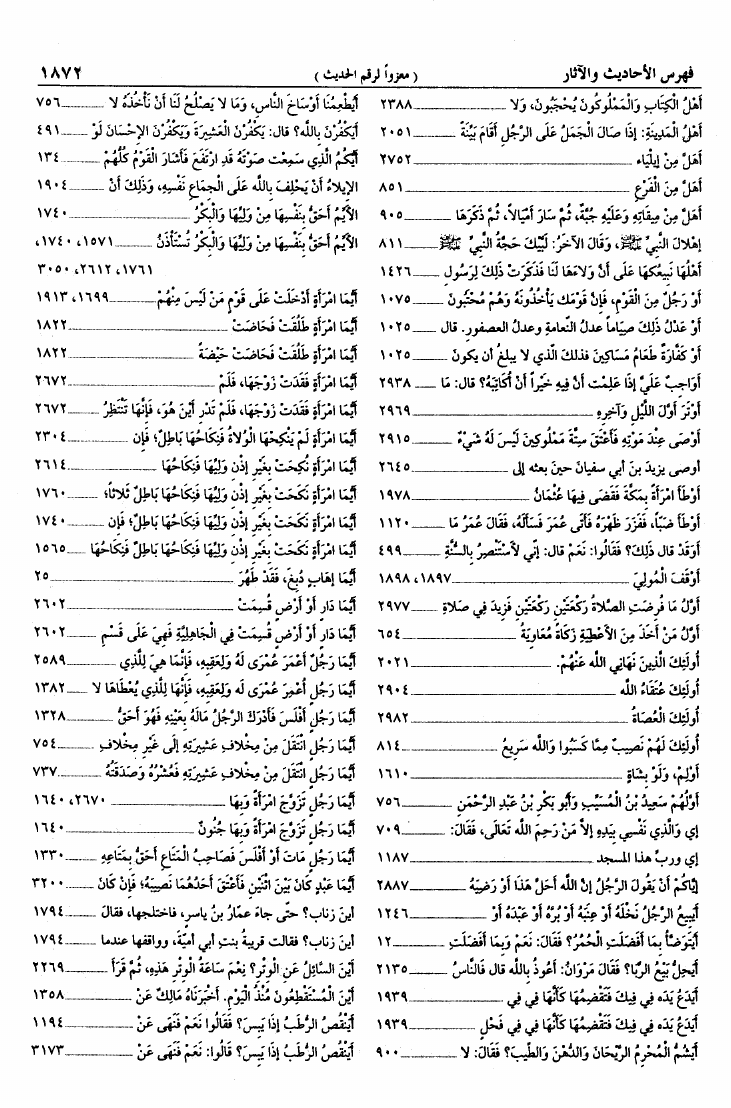 فهرس الأحاديث والآثار
( معزواً لرقم الحديث )
١٨٧٢
أَهْلُ الْكِتَابِ وَالْمَمْلُوكُونَ يُحْجَبُونَ، وَلا ٢٣٨٨
أَهْلُ الْمَدِينَةِ: إِذَا صَالَ الْجَمَلُ عَلَى الرَّجُلِ أَقَامَ بَيِّنَةً ٢٠٥١
أَهَلَّ مِنْ إيلْيَاء ٢٧٥٢
أَهَلَّ مِنَ الْفَرْعِ ٨٥١
أَهَلَّ مِنْ مِيقَاتِهِ وَعَلَيْهِ جُبَّةٌ، ثُمَّ سَارَ أَمْيَالاً، ثُمَّ ذَكَرَهَا ٩٠٥
إِهْلالَ النَّبِيِّ ﷺ، وَقَالَ الآخَرُ: لَبَّيْكَ حَجَّةُ النَّبِيِّ ﷺ ٨١١
أَهْلُهَا نَبِيعُكهَا عَلَى أَنَّ وَلاءَهَا لَنَا فَذَكَرَتْ ذَلِكَ لِرَسُولِ ١٤٢٦
أَوْ رَجُلٌ مِنَ الْقَوْمِ، فَإِنَّ قَوْمَك يَأْخُذُونَهُ وَهُمْ مُخْتَبُونَ ١٠٧٥
أَوْ عَدْلُ ذَلِكَ صِيَاماً عدلُ النَّعامةِ وعدلُ العصفورِ. قال ١٠٢٥
أَوْ كَفَّارَةٌ طَعَامُ مَسَاكِينَ فذلكَ الَّذي لا يبلغ أن يكونَ ١٠٢٥
أَوَاجِبٌ عَلَيَّ إِذَا عَلِمْت أَنَّ فِيهِ خَيْراً أَنْ أُكَاتِبَهُ؟ قال: مَا ٢٩٣٨
أَوْتَرَ أَوَّلَ اللَّيْلِ وَآخِرِهِ ٢٩٦٩
أَوْصَى عِنْدَ مَوْتِهِ فَأَعْتَقَ سِتَّةَ مَمْلُوكِينَ لَيْسَ لَهُ شَيْءٌ ٢٩١٥
أوصى يزيدَ بنَ أبي سفيانَ حينَ بعثه إلى ٢٦٤٥
أَوْطَأَ امْرَأَةً بِمَكَّةَ فَقَضَى فِيهَا عُثْمَانُ ١٩٧٨
أَوْطَأَ ضَبّاً، فَفَزَرَ ظَهْرَهُ فَأَتَى عُمَرَ فَسَأَلَهُ، فَقَالَ عُمَرُ مَا ١١٢٠
أَوَقَدْ قال ذَلِكَ؟ فَقَالُوا: نَعَمْ قال: إِنِّي لأَسْتَنْصِرُ بِالسُّنَّةِ ٤٩٩
أَوْقَفَ الْمُولِيَ ١٨٩٧، ١٨٩٨
أَوَّلُ مَا فُرِضَتِ الصَّلاةُ رَكْعَتَيْنِ رَكْعَتَيْنِ فَزِيدَ فِي صَلاةِ ٢٩٧٧
أَوَّلُ مَنْ أَخَذَ مِنَ الأَعْطِيَةِ زَكَاةً مُعَاوِيَةُ ٦٥٤
أُولَئِكَ الَّذِينَ نَهَانِي اللَّه عَنْهُمْ. ٢٠٢١
أُولَئِكَ عُتَقَاءُ اللَّه ٢٩٠٤
أُولَئِكَ الْعُصَاةُ ٢٩٨٢
أُولَئِكَ لَهُمْ نَصِيبٌ مِمَّا كَسَبُوا وَاللَّه سَرِيعُ ٨١٤
أَوْلِمْ، وَلَوْ بِشَاةٍ ١٦١٠
أَوَّلُهُمْ سَعِيدُ بْنُ الْمُسَيَّبِ وَأَبُو بَكْرِ بْنُ عَبْدِ الرَّحْمَنِ ٧٥٦
إي وَالَّذِي نَفْسِي بِيَدِهِ إِلاَّ مَنْ رَحِمَ اللَّه تَعَالَى، فَقَالَ: ٧٠٩
إي وربِّ هذا المسجد ١١٨٧
إِيَّاكُمْ أَنْ يَقُولَ الرَّجُلُ إِنَّ اللَّه أَحَلَّ هَذَا أَوْ رَضِيَهُ ٢٨٨٧
أَيَبِيعُ الرَّجُلُ نَخْلَهُ أَوْ عِنَبَهُ أَوْ بُرَّهُ أَوْ عَبْدَهُ أَوْ ١٢٤٦
أَيَتَوَضَّأُ بِمَا أَفْضَلَتِ الْحُمُرُ؟ فَقَالَ: نَعَمْ وَبِمَا أَفْضَلَتِ ١٢
أَيَحِلُّ بَيْعُ الرِّبَا؟ فَقَالَ مَرْوَانُ: أَعُوذُ بِاللَّه قال فَالنَّاسُ ٢١٣٥
أَيَدَعُ يَدَه فِي فِيكَ فَتَقْضِمُهَا كَأَنَّهَا فِي فِي ١٩٣٩
أَيَدَعُ يَدَه فِي فِيكَ فَتَقْضِمُهَا كَأَنَّهَا فِي فِي فَحْلٍ ١٩٣٩
أَيَشُمُّ الْمُحْرِمُ الرَّيْحَانَ وَالدُّهْنَ وَالطِّيبَ؟ فَقَالَ: لا ٩٠٠
أَيُطْعِمُنَا أَوْسَاخَ النَّاسِ، وَمَا لا يَصْلُحُ لَنَا أَنْ نَأْخُذَهُ لا ٧٥٦
أَيَكْفُرْنَ بِاللَّه؟ قال: يَكْفُرْنَ الْعَشِيرَةَ وَيَكْفُرْنَ الإِحْسَانَ لَوْ ٤٩١
أَيُّكُمُ الَّذِي سَمِعْت صَوْتَهُ قَدِ ارْتَفَعَ فَأَشَارَ الْقَوْمُ كُلُّهُمْ ١٣٤
الإيلاءُ أَنْ يَحْلِفَ بِاللَّه عَلَى الْجِمَاعِ نَفْسِهِ، وَذَلِكَ أَنْ ١٩٠٤
الأَيِّمُ أَحَقُّ بِنَفْسِهَا مِنْ وَلِيِّهَا وَالْبِكْرُ ١٧٤٠
الأَيِّمُ أَحَقُّ بِنَفْسِهَا مِنْ وَلِيِّهَا وَالْبِكْرُ تُسْتَأْذَنُ ١٥٧١، ١٧٤٠،
١٧٦١، ٢٦١٢، ٣٠٥٠
أَيُّمَا امْرَأَةٍ أَدْخَلَتْ عَلَى قَوْمٍ مَنْ لَيْسَ مِنْهُمْ ١٦٩٩، ١٩١٣
أَيُّمَا امْرَأَةٍ طَلُقَتْ فَحَاضَتْ ١٨٢٢
أَيُّمَا امْرَأَةٍ طَلُقَتْ فَحَاضَتْ حَيْضَةً ١٨٢٢
أَيُّمَا امْرَأَةٍ فَقَدَتْ زَوْجَهَا، فَلَمْ ٢٦٧٢
أَيُّمَا امْرَأَةٍ فَقَدَتْ زَوْجَهَا، فَلَمْ تَدْرِ أَيْنَ هُوَ، فَإِنَّهَا تَنْتَظِرُ ٢٦٧٢
أَيُّمَا امْرَأَةٍ لَمْ يَنْكِحْهَا الْوُلاةُ فَنِكَاحُهَا بَاطِلٌ؛ فَإِن ٢٣٠٤
أَيُّمَا امْرَأَةٍ نُكِحَتْ بِغَيْرِ إِذْنِ وَلِيِّهَا فَنِكَاحُهَا ٢٦١٤
أَيُّمَا امْرَأَةٍ نَكَحَتْ بِغَيْرِ إِذْنِ وَلِيِّهَا فَنِكَاحُهَا بَاطِلٌ ثَلاثاً؛ ١٧٦٠
أَيُّمَا امْرَأَةٍ نَكَحَتْ بِغَيْرِ إِذْنِ وَلِيِّهَا فَنِكَاحُهَا بَاطِلٌ؛ فإن ١٧٤٠
أَيُّمَا امْرَأَةٍ نَكَحَتْ بِغَيْرِ إِذْنِ وَلِيِّهَا فَنِكَاحُهَا بَاطِلٌ فَنِكَاحُهَا ١٥٦٥
أَيُّمَا إِهَابٍ دُبِغَ، فَقَدْ طَهُرَ ٢٥
أَيُّمَا دَارٍ أَوْ أَرْضٍ قُسِمَتْ ٢٦٠٢
أَيُّمَا دَارٍ أَوْ أَرْضٍ قُسِمَتْ فِي الْجَاهِلِيَّةِ فَهِيَ عَلَى قَسْمِ ٢٦٠٢
أَيُّمَا رَجُلٍ أَعْمَرَ عُمْرَى لَهُ وَلِعَقِبِهِ، فَإِنَّمَا هِيَ لِلَّذِي ٢٥٨٩
أَيُّمَا رَجُلٍ أُعْمِرَ عُمْرَى لَه وَلِعَقِبِهِ، فَإِنَّهَا لِلَّذِي يُعْطَاهَا لا ١٣٨٢
أَيُّمَا رَجُلٍ أَفْلَسَ فَأَدْرَكَ الرَّجُلُ مَالَهُ بِعَيْنِهِ فَهُوَ أَحَقُّ ١٣٢٨
أَيُّمَا رَجُلٍ انْتَقَلَ مِنْ مِخْلافِ عَشِيرَتِهِ إِلَى غَيْرِ مِخْلافِ ٧٥٤
أَيُّمَا رَجُلٍ انْتَقَلَ مِنْ مِخْلافِ عَشِيرَتِهِ فَعُشْرُهُ وَصَدَقَتُهُ ٧٣٧
أَيُّمَا رَجُلٍ تَزَوَّجَ امْرَأَةً وَبِهَا ٢٦٧٠، ١٦٤٠
أَيُّمَا رَجُلٍ تَزَوَّجَ امْرَأَةً وَبِهَا جُنُونٌ ١٦٤٠
أَيُّمَا رَجُلٍ مَاتَ أَوْ أَفْلَسَ فَصَاحِبُ الْمَتَاعِ أَحَقُّ بِمَتَاعِهِ ١٣٣٠
أَيُّمَا عَبْدٍ كَانَ بَيْنَ اثْنَيْنِ فَأَعْتَقَ أَحَدُهُمَا نَصِيبَهُ؛ فَإِنْ كَانَ ٣٢٠٠
أين زناب؟ حتَّى جاءَ عمَّارُ بنُ ياسرٍ، فاختلجها، فقالَ ١٧٩٤
أين زناب؟ فقالت قريبةُ بنتِ أبي أميَّةَ، وواقفها عندما ١٧٩٤
أَيْنَ السَّائِلُ عَنِ الْوِتْرِ؟ نِعْمَ سَاعَةُ الْوِتْرِ هَذِهِ، ثُمَّ قَرَأَ ٢٢٦٩
أَيْنَ الْمُسْتَقْطِعُونَ مُنْذُ الْيَوْمِ. أَخْبَرَنَاهُ مَالِكٌ عَنْ ١٣٥٨
أَيَنْقُصُ الرُّطَبُ إِذَا يَبِسَ؟ فَقَالُوا نَعَمْ فَنَهَى عَنْ ١١٩٤
أَيَنْقُصُ الرُّطَبُ إِذَا يَبِسَ؟ قَالُوا: نَعَمْ فَنَهَى عَنْ ٣١٧٣